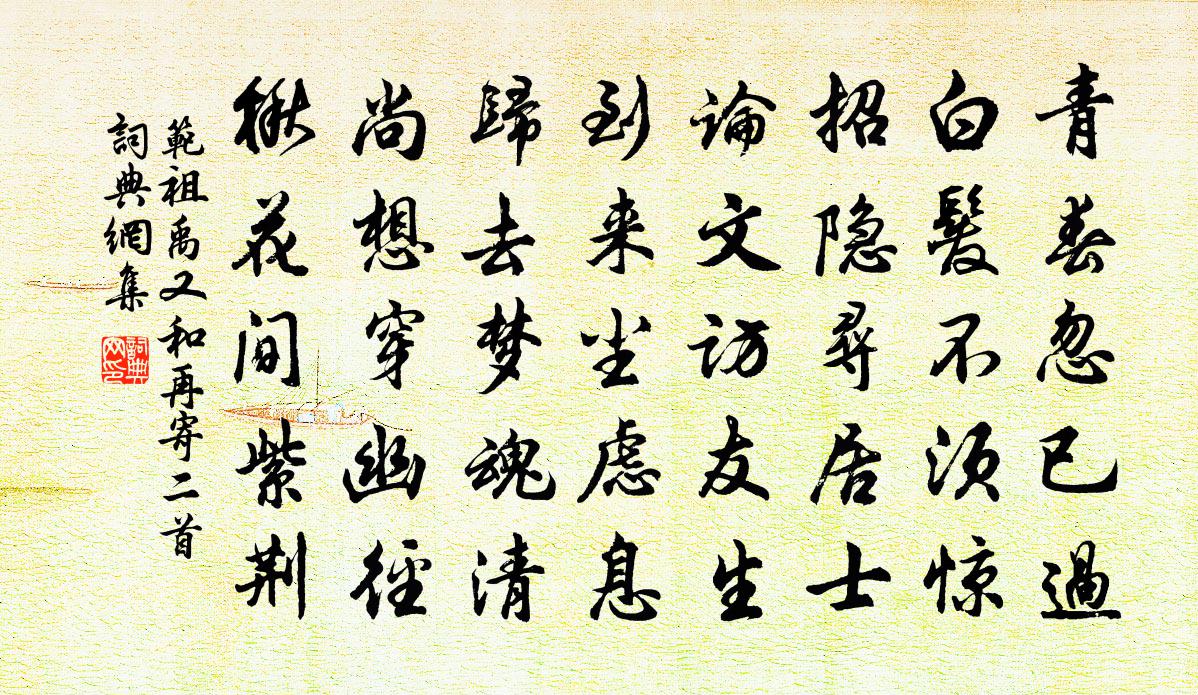 青春忽已過
白髮不须惊
招隐尋居士
論文访友生
到来尘虑息
歸去梦魂清
尚想穿幽徑
楸花间紫荆
範祖禹又和再寄二首
詞典網集
詞典网印